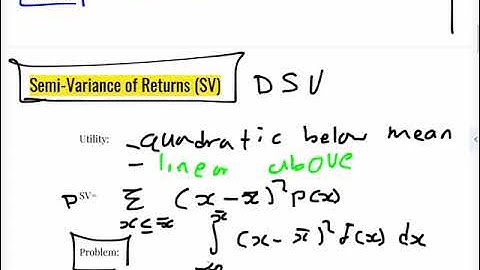 Semi-Variance of Returns (SV) DSV
Utility: - quadratic below mean
- linear above
D SV= Σ (x - x̄)² p(x)
x ≤ x̄
Problem: ∫ (x - x̄)² f(x) dx
x̄
-∞